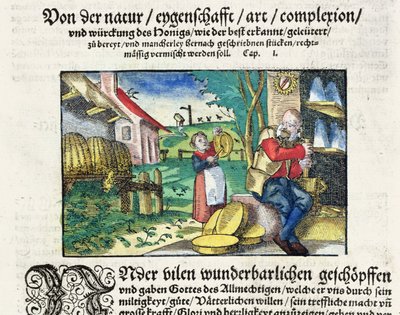 Von der natur / eygenschafft / art / complexion /
und würckung des Honigs / wie der best erkannt / geleütert /
zů bereyt / und mancherley hernach geschribnen stücken / recht-
mässig vermischt werden soll. Cap. 1.
UNder vilen wunderbarlichen geschöpffen
und gaben Gottes des Allmechtigen / welche er uns durch sein
miltigkeyt / güte / Vätterlichen willen / sein treffliche macht uñ
grosse krafft / Glori und herrligkeyt anzuzeigen / geben und